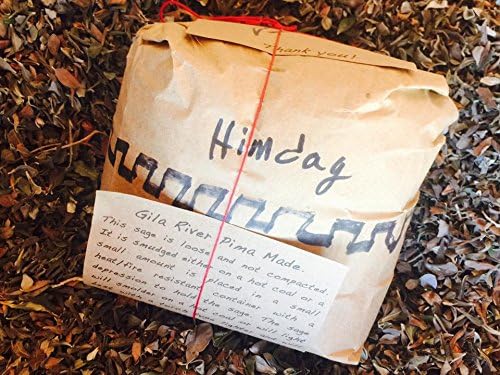 Thank you!
Himdag
Gila River Pima Made.
This sage is loose and not compacted.
It is smudged either on a hot coal or a
small amount is placed in a small
heat/fire resistant container with a
depression to hold the sage. The sage
will smolder on a hot
with a coal or will light